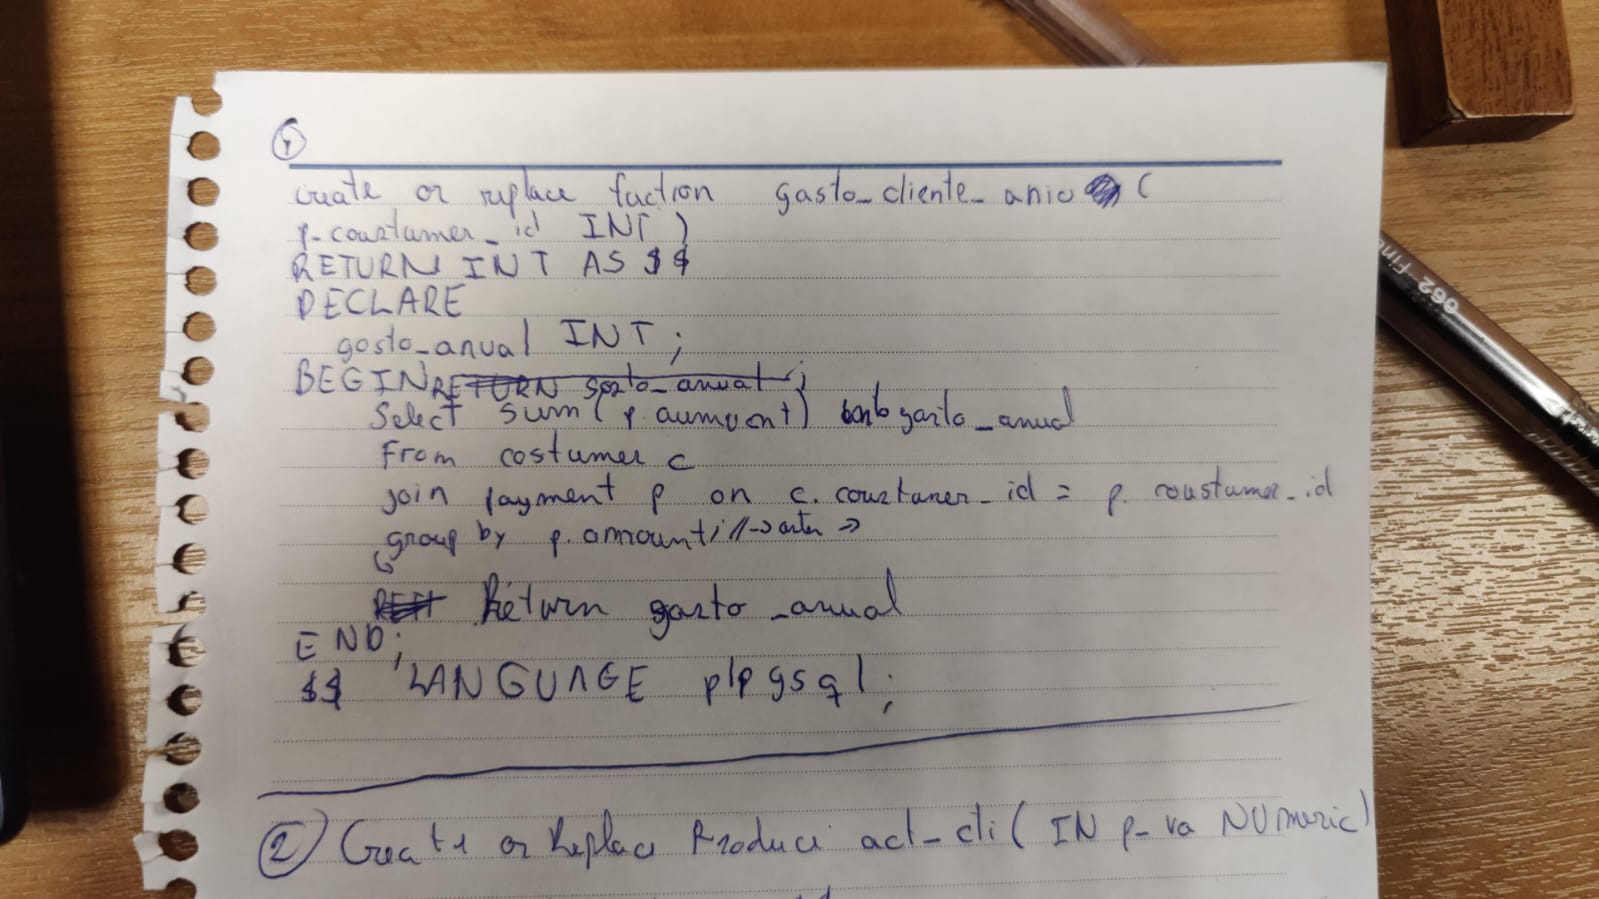 1
create or replace fuction gasto_cliente_anio (
p_coustumer_id INT)
RETURN INT AS $$
DECLARE
gosto_anual INT;
BEGIN RETURN gasto_anual;
Select sum(p.aumount) into gasto_anual
From costumer c
join payment p on c.coustumer_id = p.coustumer_id
group by p.amount; //->
Return gasto_anual
END;
$$ LANGUAGE plpgsql;
2 Create or Replace Produce act_cli( IN p_va NUmeric)
062 Fine